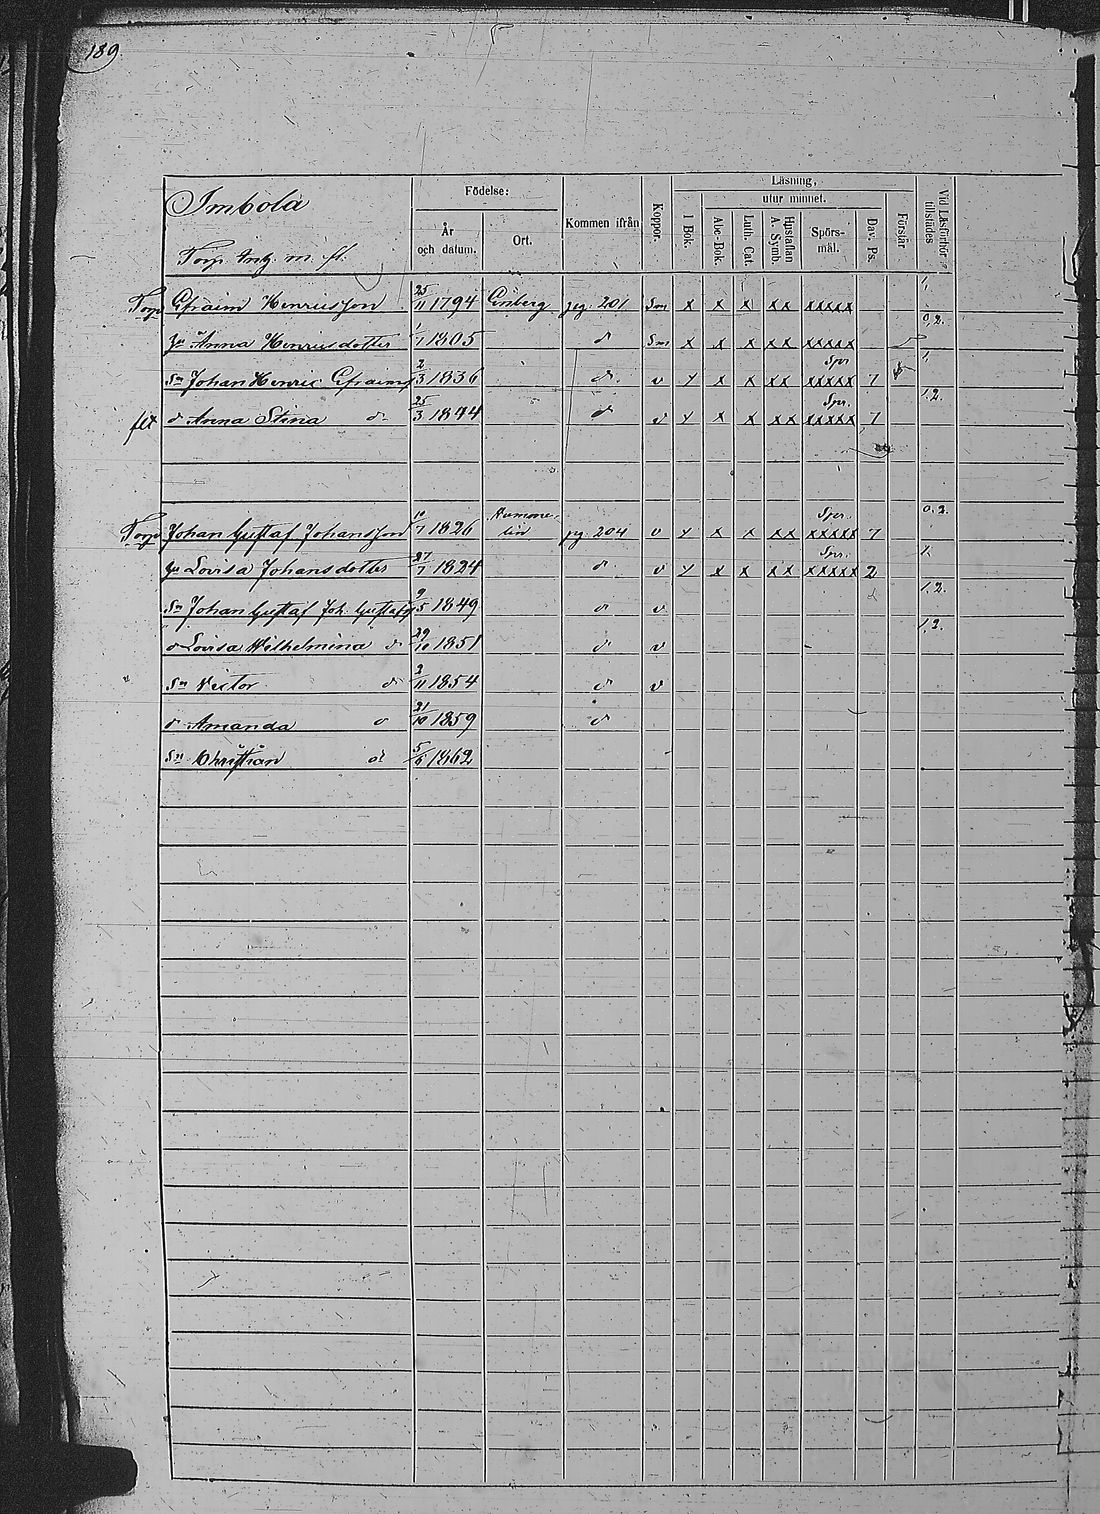 189.
Imbola
Torp. Inh. m. fl.
Födelse:
År och datum.
Ort.
Kommen ifrån
Koppor.
Läsning,
utur minnet.
I Bok.
Abc-Bok.
Luth. Cat.
Hustaflan A. Symb.
Spörsmål.
Dav. Ps.
Förstår
Vid Läsförhör tillstädes
Torp Efraim Henricsson 25/11 1794 pag. 201 Sm x x x xx xxxxx 1,
Hu Anna Henricsdotter 1/1 1805 d Sm x x x xx xxxxx 0,2.
Sn Johan Henric Efraims 2/3 1836 d. v y x x xx Spr xxxxx 7 1,
d Anna Stina d. 25/3 1844 d v y x x xx Spr. xxxxx 7 1,2.
Torp Johan Gustaf Johansson 10/7 1826 pag. 204 v y x x xx Spr. xxxxx 7 0,2.
Hu Lovisa Johansdotter 27/7 1824 d v y x x xx Spr. xxxxx 2 1,
Sn Johan Gustaf Joh. Gustafs 9/5 1849 d v 1,2.
d Lovisa Wilhelmina d 29/10 1851 d v 1,2.
Sn Victor d 3/11 1854 d v
d Amanda d 21/10 1859 d
Sn Christian d 5/6 1862